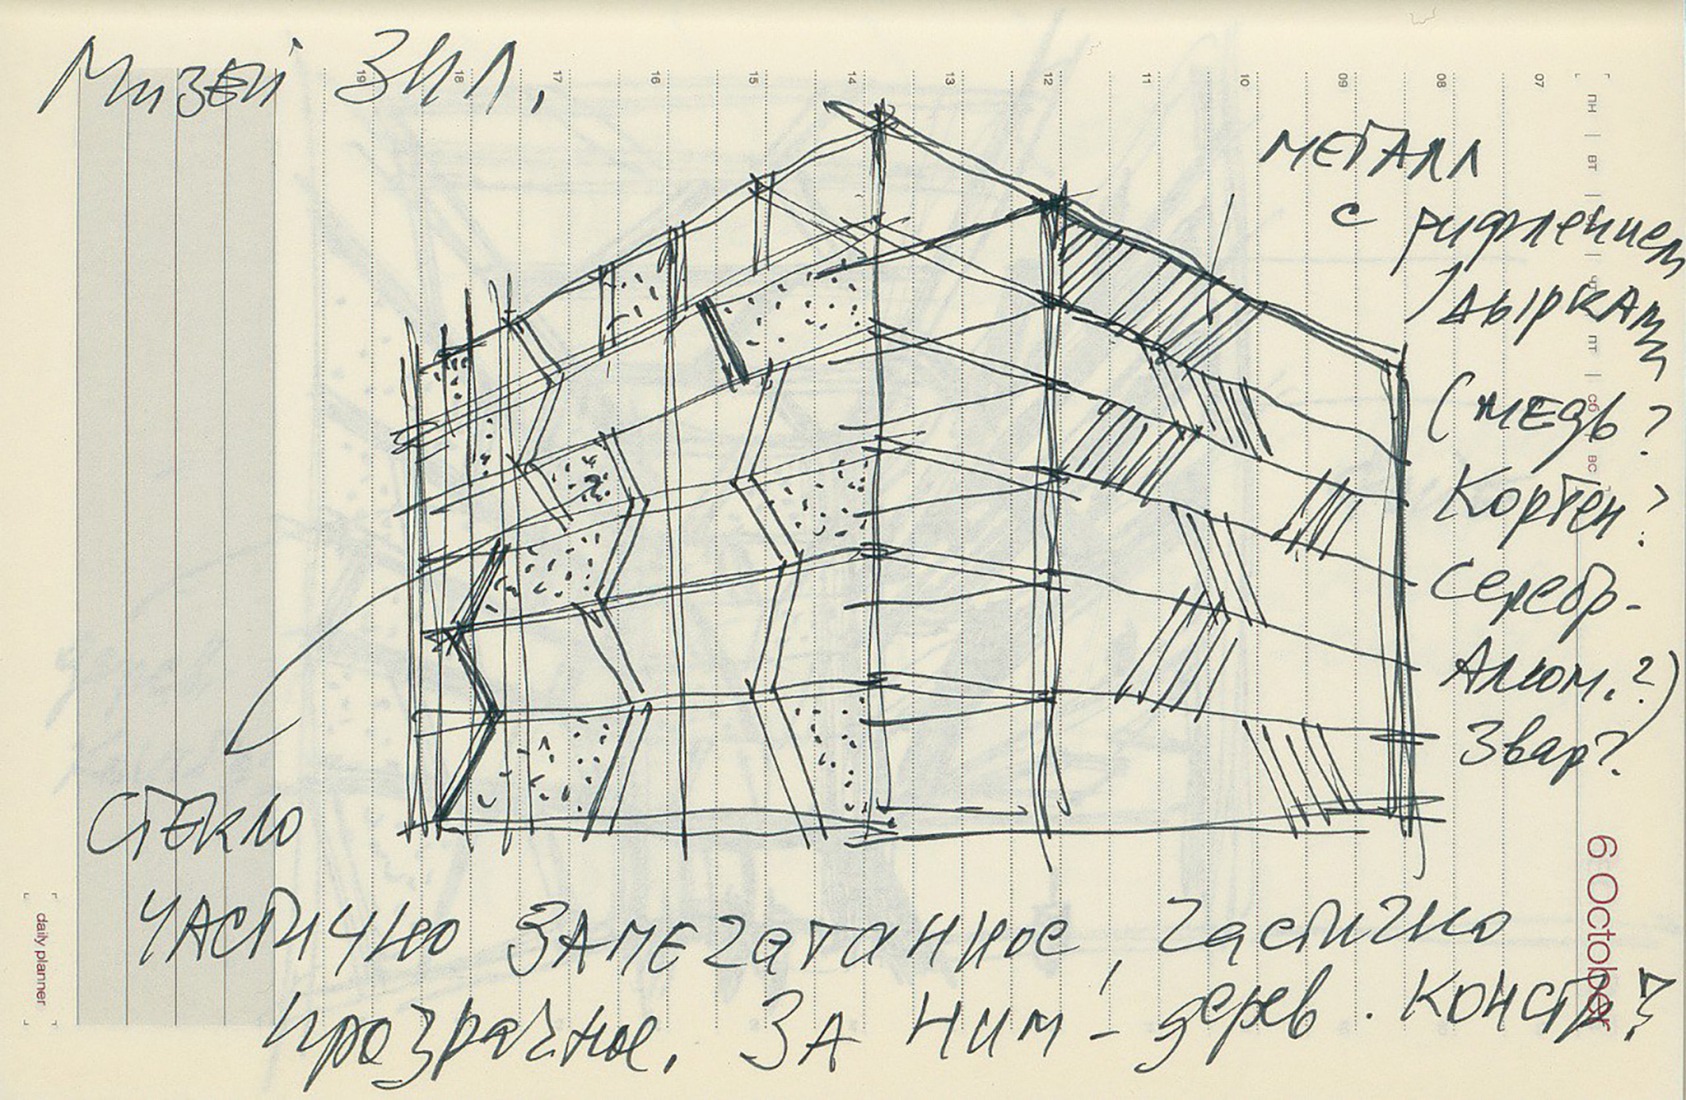 Музей ЗИЛ.
19 18 17 16 15 14 13 12 11 10 09 08 07
пн | вт | | пт | сб | вс
металл
с рифлением
дырками
(медь?
Кортен?
серебр-
Алюм.?)
6 October
стекло
daily planner
частично запечатанное, частично
прозрачное. За ним - дерев. констр?